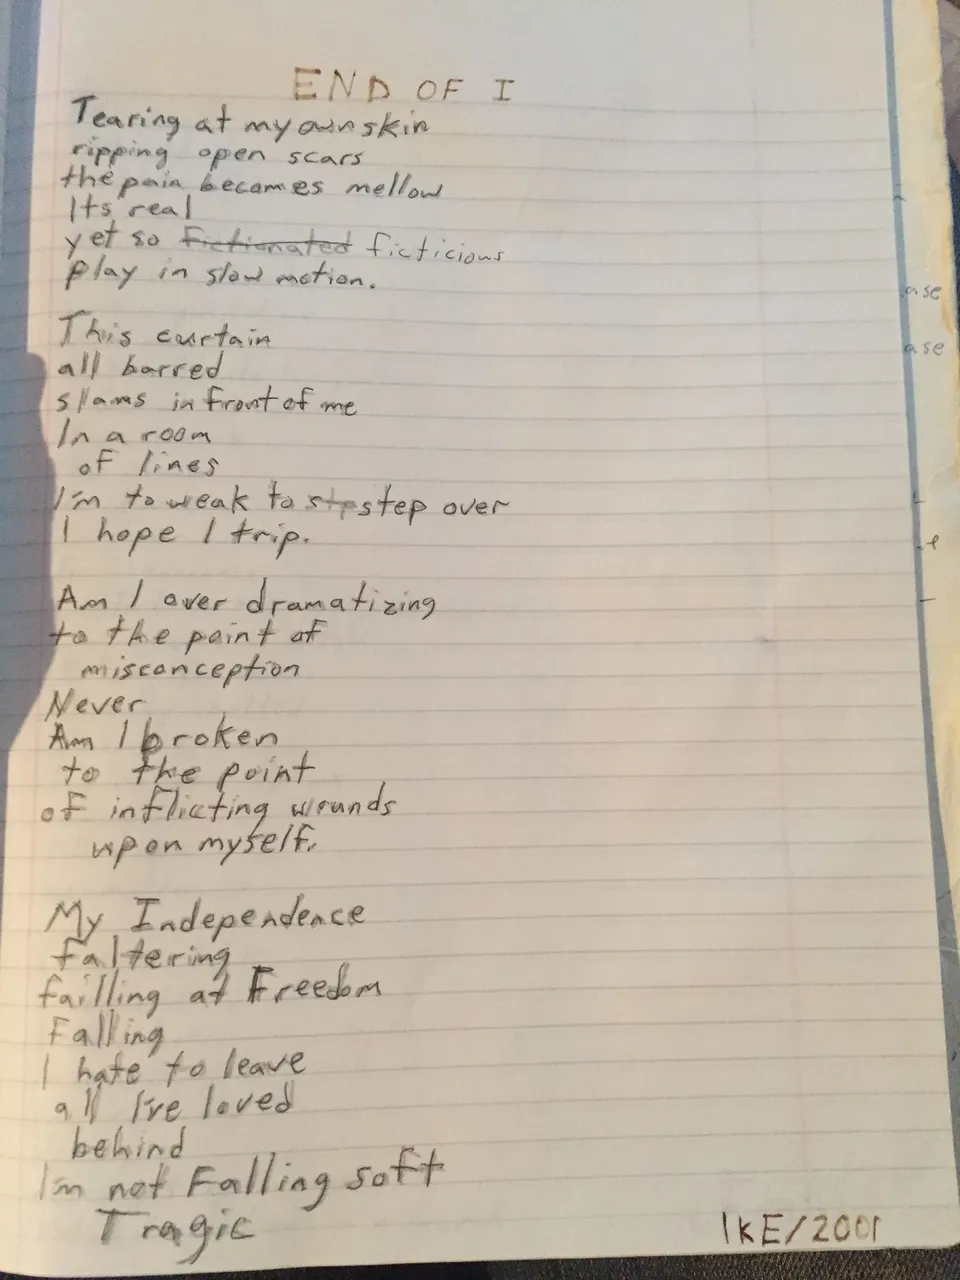 END OF I
Tearing at my own skin
ripping open scars
the pain becomes mellow
Its real
yet so fictionated ficticious
play in slow motion.
This curtain
all barred
slams in front of me
In a room
of lines
I'm to weak to stp step over
I hope I trip.
Am I over dramatizing
to the point of
misconception
Never
Am I broken
to the point
of inflicting wounds
upon myself.
My Independence
faltering
failling at Freedom
Falling
I hate to leave
all I've loved
behind
I'm not Falling soft
Tragic
IKE/2001
ase
ase